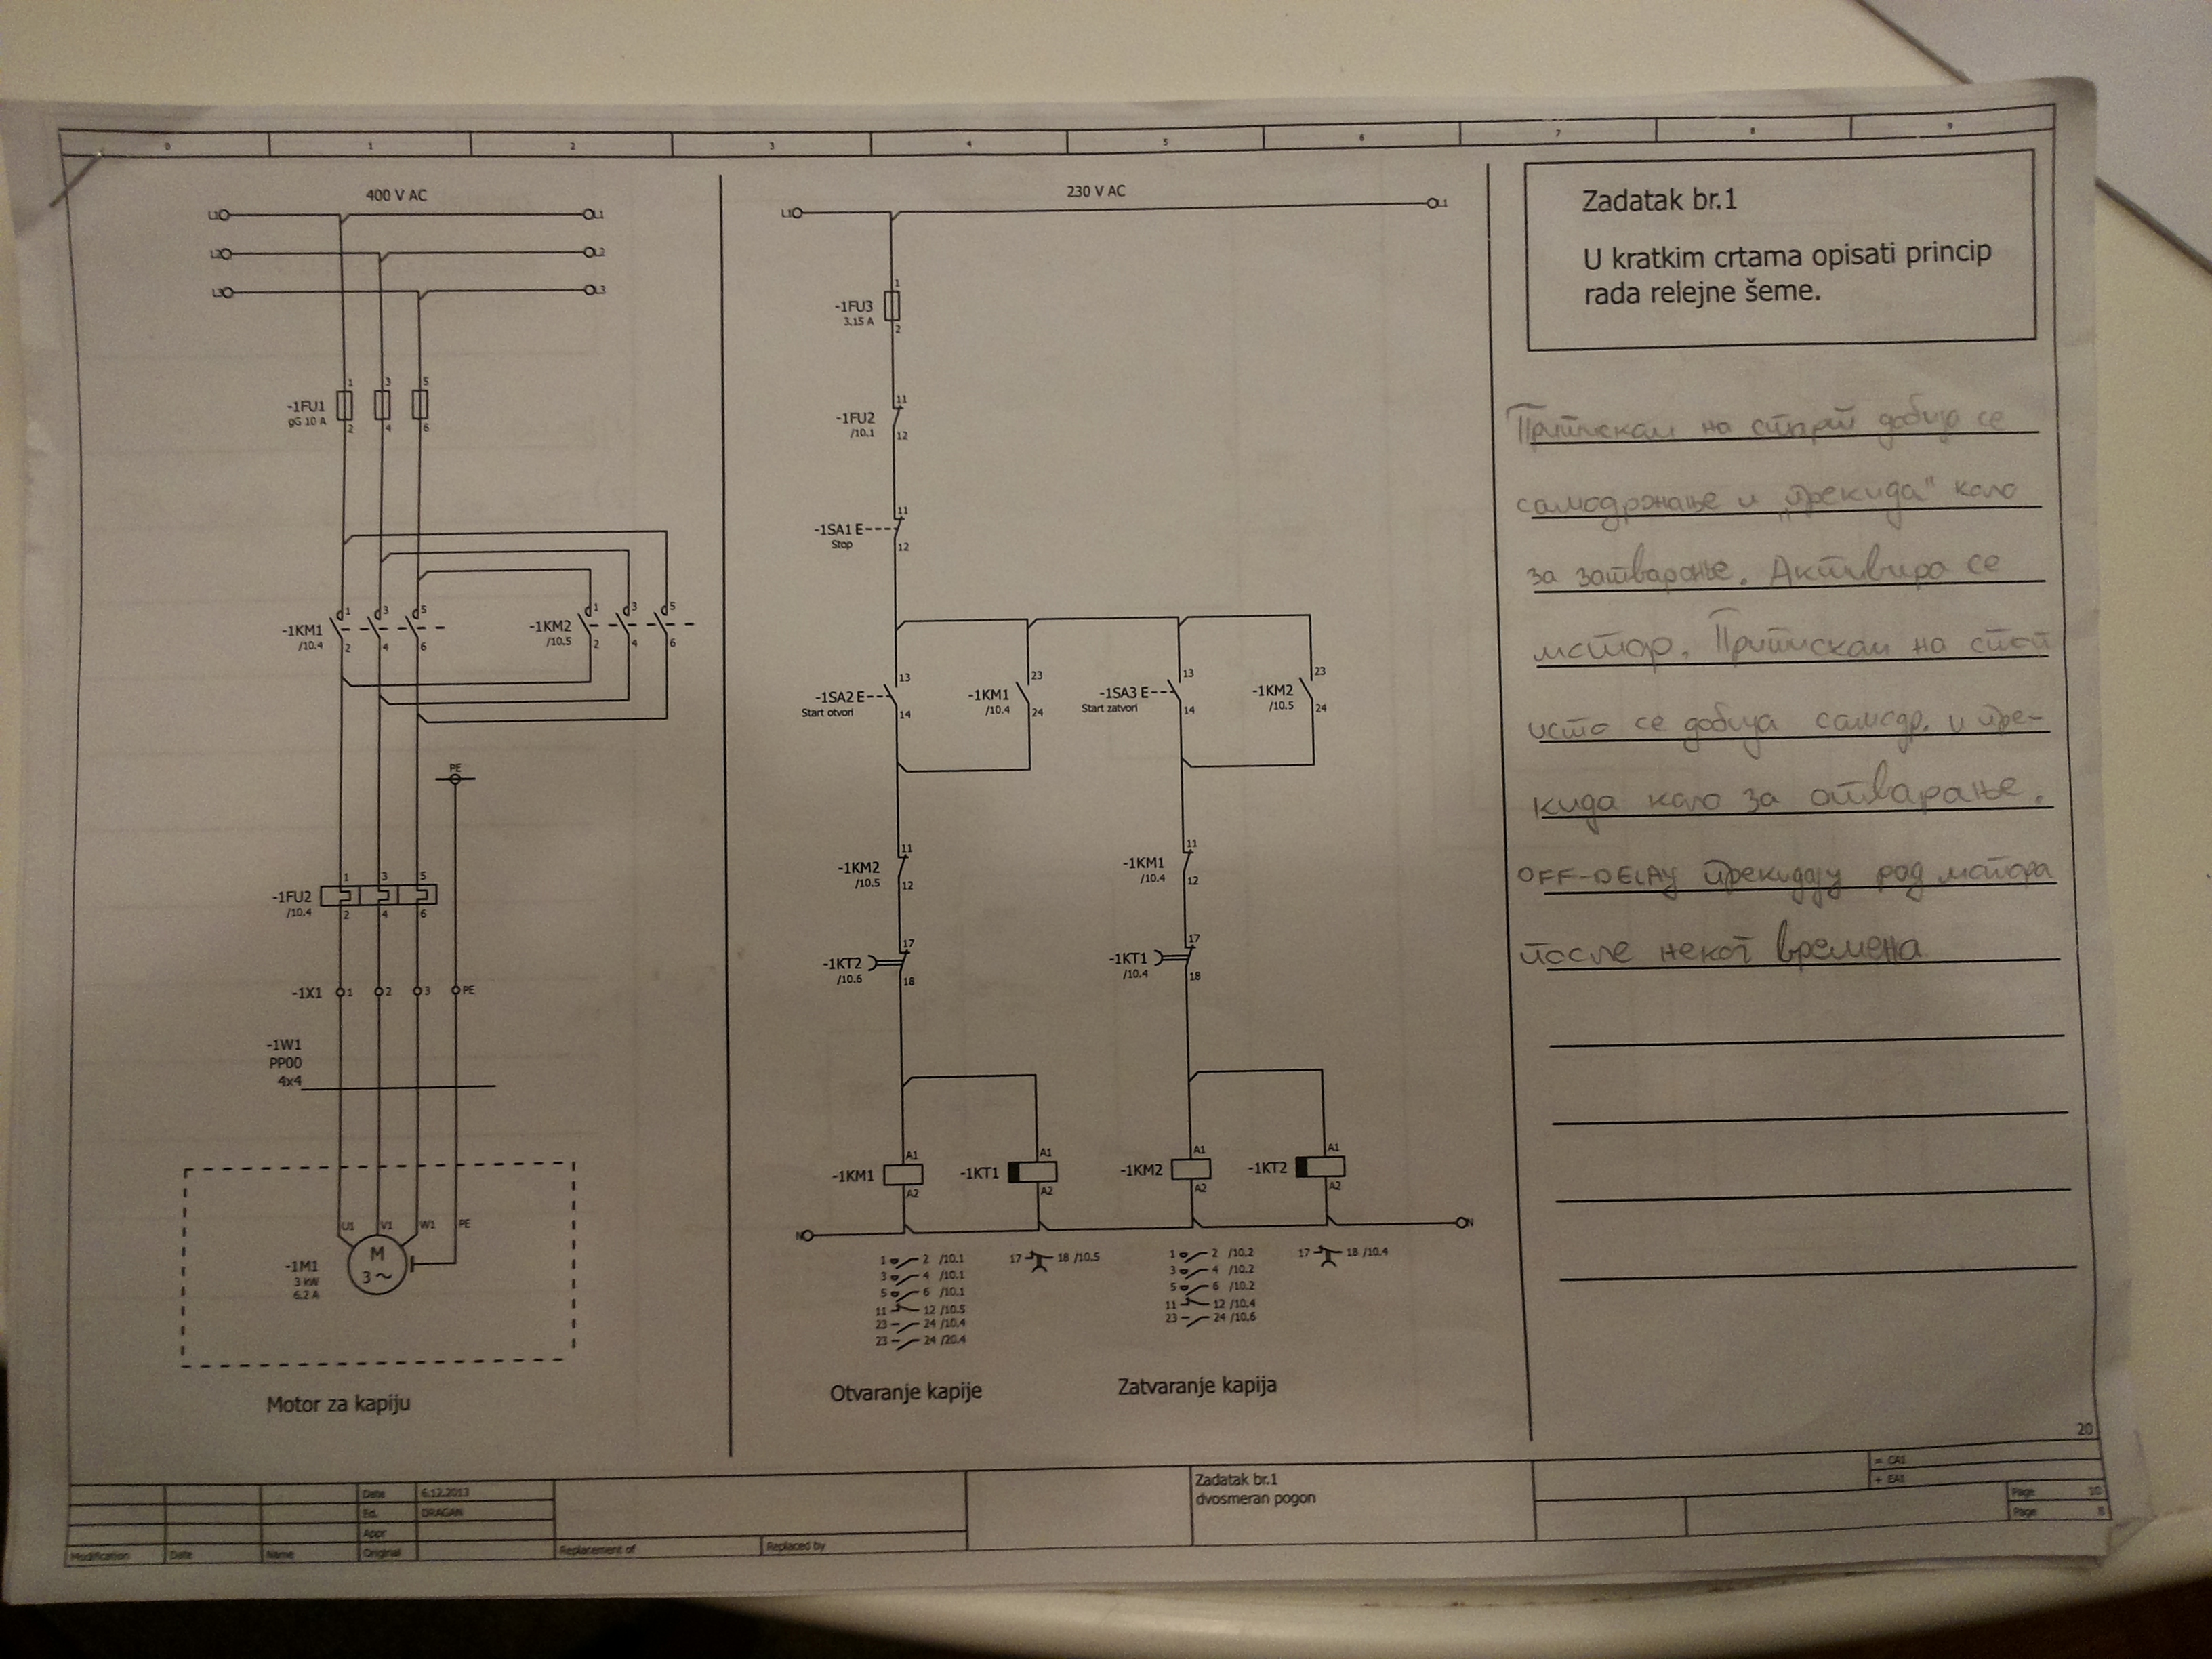 0 1 2 3 4 5 6 7 8 9
400 V AC
L1 L1
L2 L2
L3 L3
-1FU1
gG 10 A
1 3 5
2 4 6
-1KM1
/10.4
1 3 5
2 4 6
-1KM2
/10.5
1 3 5
2 4 6
PE
-1FU2
/10.4
1 3 5
2 4 6
-1X1 1 2 3 PE
-1W1
PP00
4x4
U1 V1 W1 PE
-1M1
3 kW
6,2 A
M
3 ~
Motor za kapiju
230 V AC
L1 L1
-1FU3
3,15 A
1
2
-1FU2
/10.1
11
12
-1SA1 E
Stop
11
12
-1SA2 E
Start otvori
13
14
-1KM1
/10.4
23
24
-1SA3 E
Start zatvori
13
14
-1KM2
/10.5
23
24
-1KM2
/10.5
11
12
-1KM1
/10.4
11
12
-1KT2
/10.6
17
18
-1KT1
/10.4
17
18
-1KM1 A1 A2
-1KT1 A1 A2
-1KM2 A1 A2
-1KT2 A1 A2
N N
1 2 /10.1
3 4 /10.1
5 6 /10.1
11 12 /10.5
23 24 /10.4
23 24 /20.4
17 18 /10.5
1 2 /10.2
3 4 /10.2
5 6 /10.2
11 12 /10.4
23 24 /10.6
17 18 /10.4
Otvaranje kapije
Zatvaranje kapija
Zadatak br.1
U kratkim crtama opisati princip
rada relejne šeme.
Притискам на старт добија се
самодржање и „прекида" коло
за затварање. Активира се
мотор. Притискам на стоп
исто се добија самодр. и пре-
кида коло за отварање.
OFF-DELAY прекидају рад мотора
после неког времена
20
Date 6.12.2013
Ed. DRAGAN
Appr
Modification Date Name Original
Replacement of
Replaced by
Zadatak br.1
dvosmeran pogon
= CA1
+ EA1
Page 10
Page 8